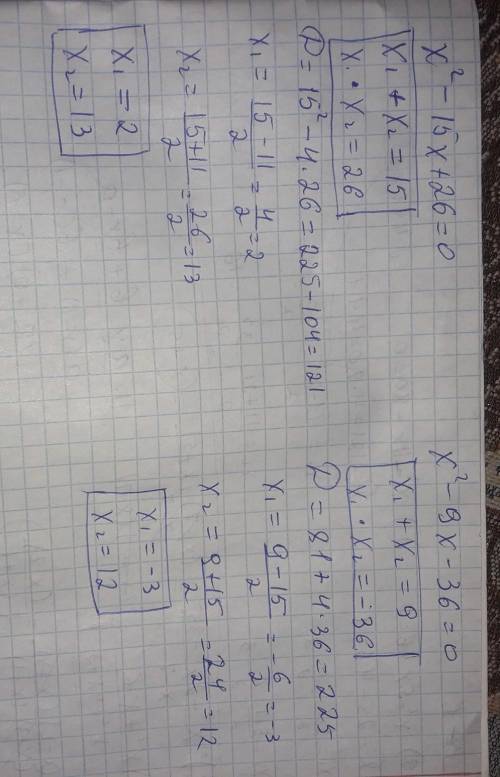 x² - 15x + 26 = 0
x₁ + x₂ = 15
x₁ · x₂ = 26
D = 15² - 4 · 26 = 225 - 104 = 121
x₁ = (15 - 11)/2 = 4/2 = 2
x₂ = (15 + 11)/2 = 26/2 = 13
x₁ = 2
x₂ = 13
x² - 9x - 36 = 0
x₁ + x₂ = 9
x₁ · x₂ = -36
D = 81 + 4 · 36 = 225
x₁ = (9 - 15)/2 = -6/2 = -3
x₂ = (9 + 15)/2 = 24/2 = 12
x₁ = -3
x₂ = 12